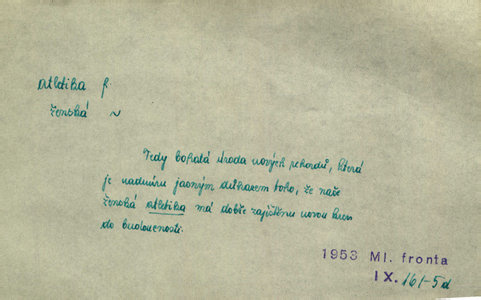 atletika f
ženská ~
Tedy bohatá úroda nových rekordů, která
je nadmíru jasným důkazem toho, že naše
ženská atletika má dobře zajištěnu novou krev
do budoucnosti.
1953 Ml. fronta
IX. 161-5d